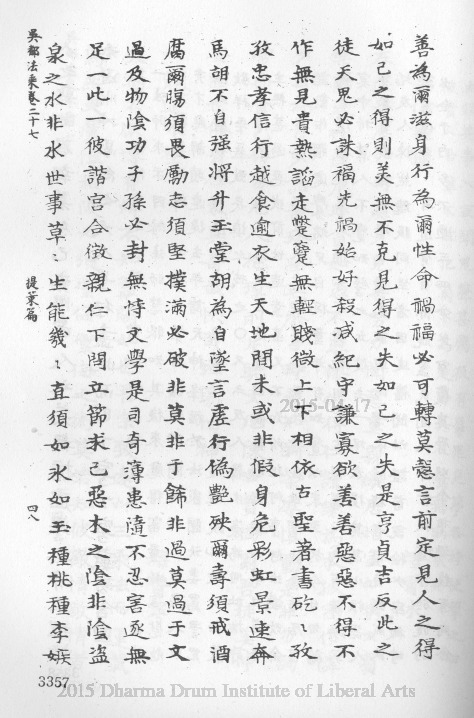 善為爾滋身行為爾性命禍福必可轉莫慤言前定見人之得
如己之得則美無不克見得之失如己之失是亨貞吉反此之
徒天鬼必誅福先禍始好殺滅紀守謙寡欲善善惡惡不得不
作無見貴熱謟走蹩躠無輕賤微上下相依古聖著書矻〻孜
孜忠孝信行越食逾衣生天地間未或非假身危彩虹景速奔
馬胡不自强將升玉堂胡為自墜言虛行偽艷殃爾壽須戒酒
腐爾腸須畏勵志須堅撲滿必破非莫非于飾非過莫過于文
過及物陰功子孫必封無恃文學是司奇薄患隨不忍害逐無
足一此一彼諧宮合徵親仁下問立節求己惡木之陰非陰盜
泉之水非水世事草〻生能幾〻直須如氷如玉種桃種李嫉
吳都法乘卷二十七
提策篇
四八
3357
2015-04-17
2015 Dharma Drum Institute of Liberal Arts